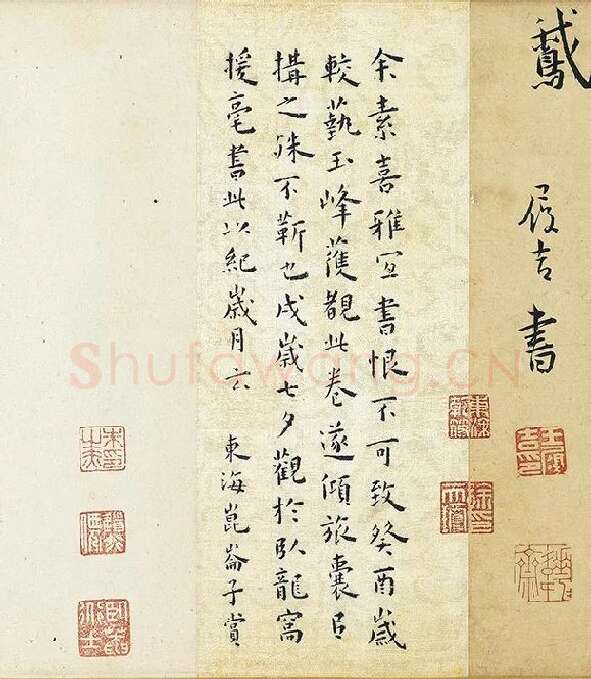 鵞
履吉書
余素喜雅宜書恨不可致癸酉歲
較藝玉峰獲觀此卷遂傾旅囊㠯
搆之殊不靳也戌歲七夕觀於臥龍窩
援毫書此以紀歲月云 東海崑崙子賞
王履吉印
Shufawang.CN